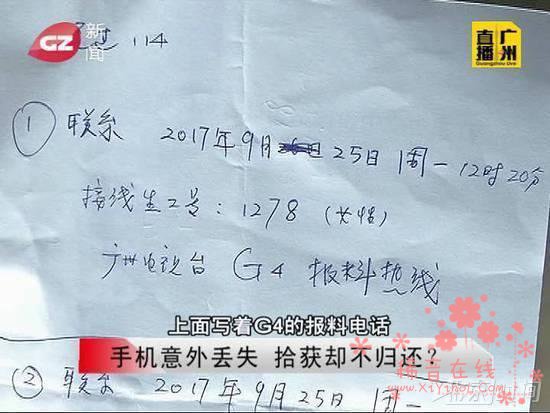 GZ 新闻
直播 广州
Guangzhou Live
114
① 联系 2017年9月 25日 周一 12时20分
接线生工号：1278 (女性)
广州电视台 G4 报料热线
上面写着G4的报料电话
手机意外丢失 拾获却不归还？
② 联系 2017年9月25日 周一
稀音在线
www.XiYin0l.Com